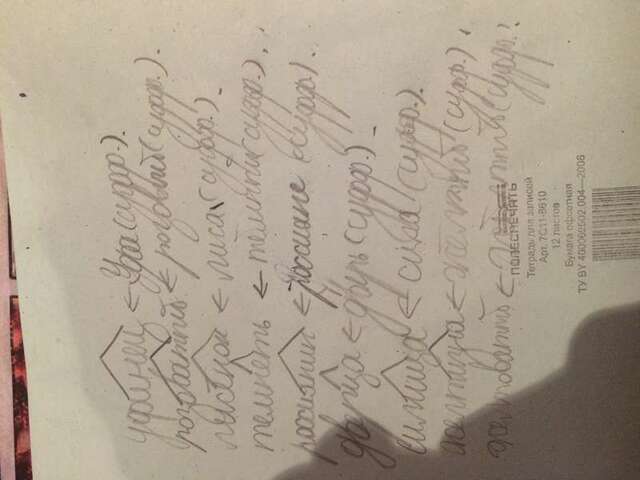 уфинец ← Уфа (суфф.).
розоватый ← розовый (суфф.).
лисёнок ← лиса (суфф.).
темнеть ← тёмный (суфф.).
россиянин ← россияне (суфф.).
дверца ← дверь (суфф.).
силища ← сила (суфф.).
желтизна ← жёлтый (суфф.).
желтоватый ← жёлтый (суфф.).
ПОЛЕСПЕЧАТЬ
Тетрадь для записей
Арт. 7С11-8610
12 листов
Бумага офсетная
ТУ BY 400062502.004—2006